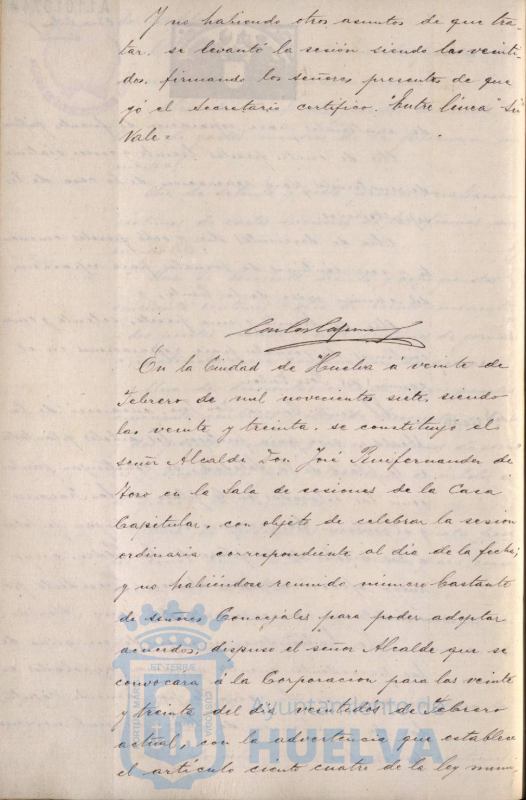 Y no habiendo otros asuntos de que tra-
tar, se levantó la sesión siendo las veinti-
dos, firmando los señores presentes de que
yó el Secretario certifico. "Entre línea"
Vale.
En la Ciudad de Huelva á veinte de
Febrero de mil novecientos siete, siendo
las veinte y treinta, se constituyó el
señor Alcalde Don José Ruifernandez de
Toro en la Sala de sesiones de la Casa
Capitular, con objeto de celebrar la sesion
ordinaria correspondiente al dia de la fecha;
y no habiéndose reunido número bastante
de señores Concejales para poder adoptar
acuerdos, dispuso el señor Alcalde que se
convocara á la Corporacion para las veinte
y treinta del dia veintidos de Febrero
actual, con la advertencia que establece
el artículo ciento cuatro de la ley muni-
Ayuntamiento de
HUELVA